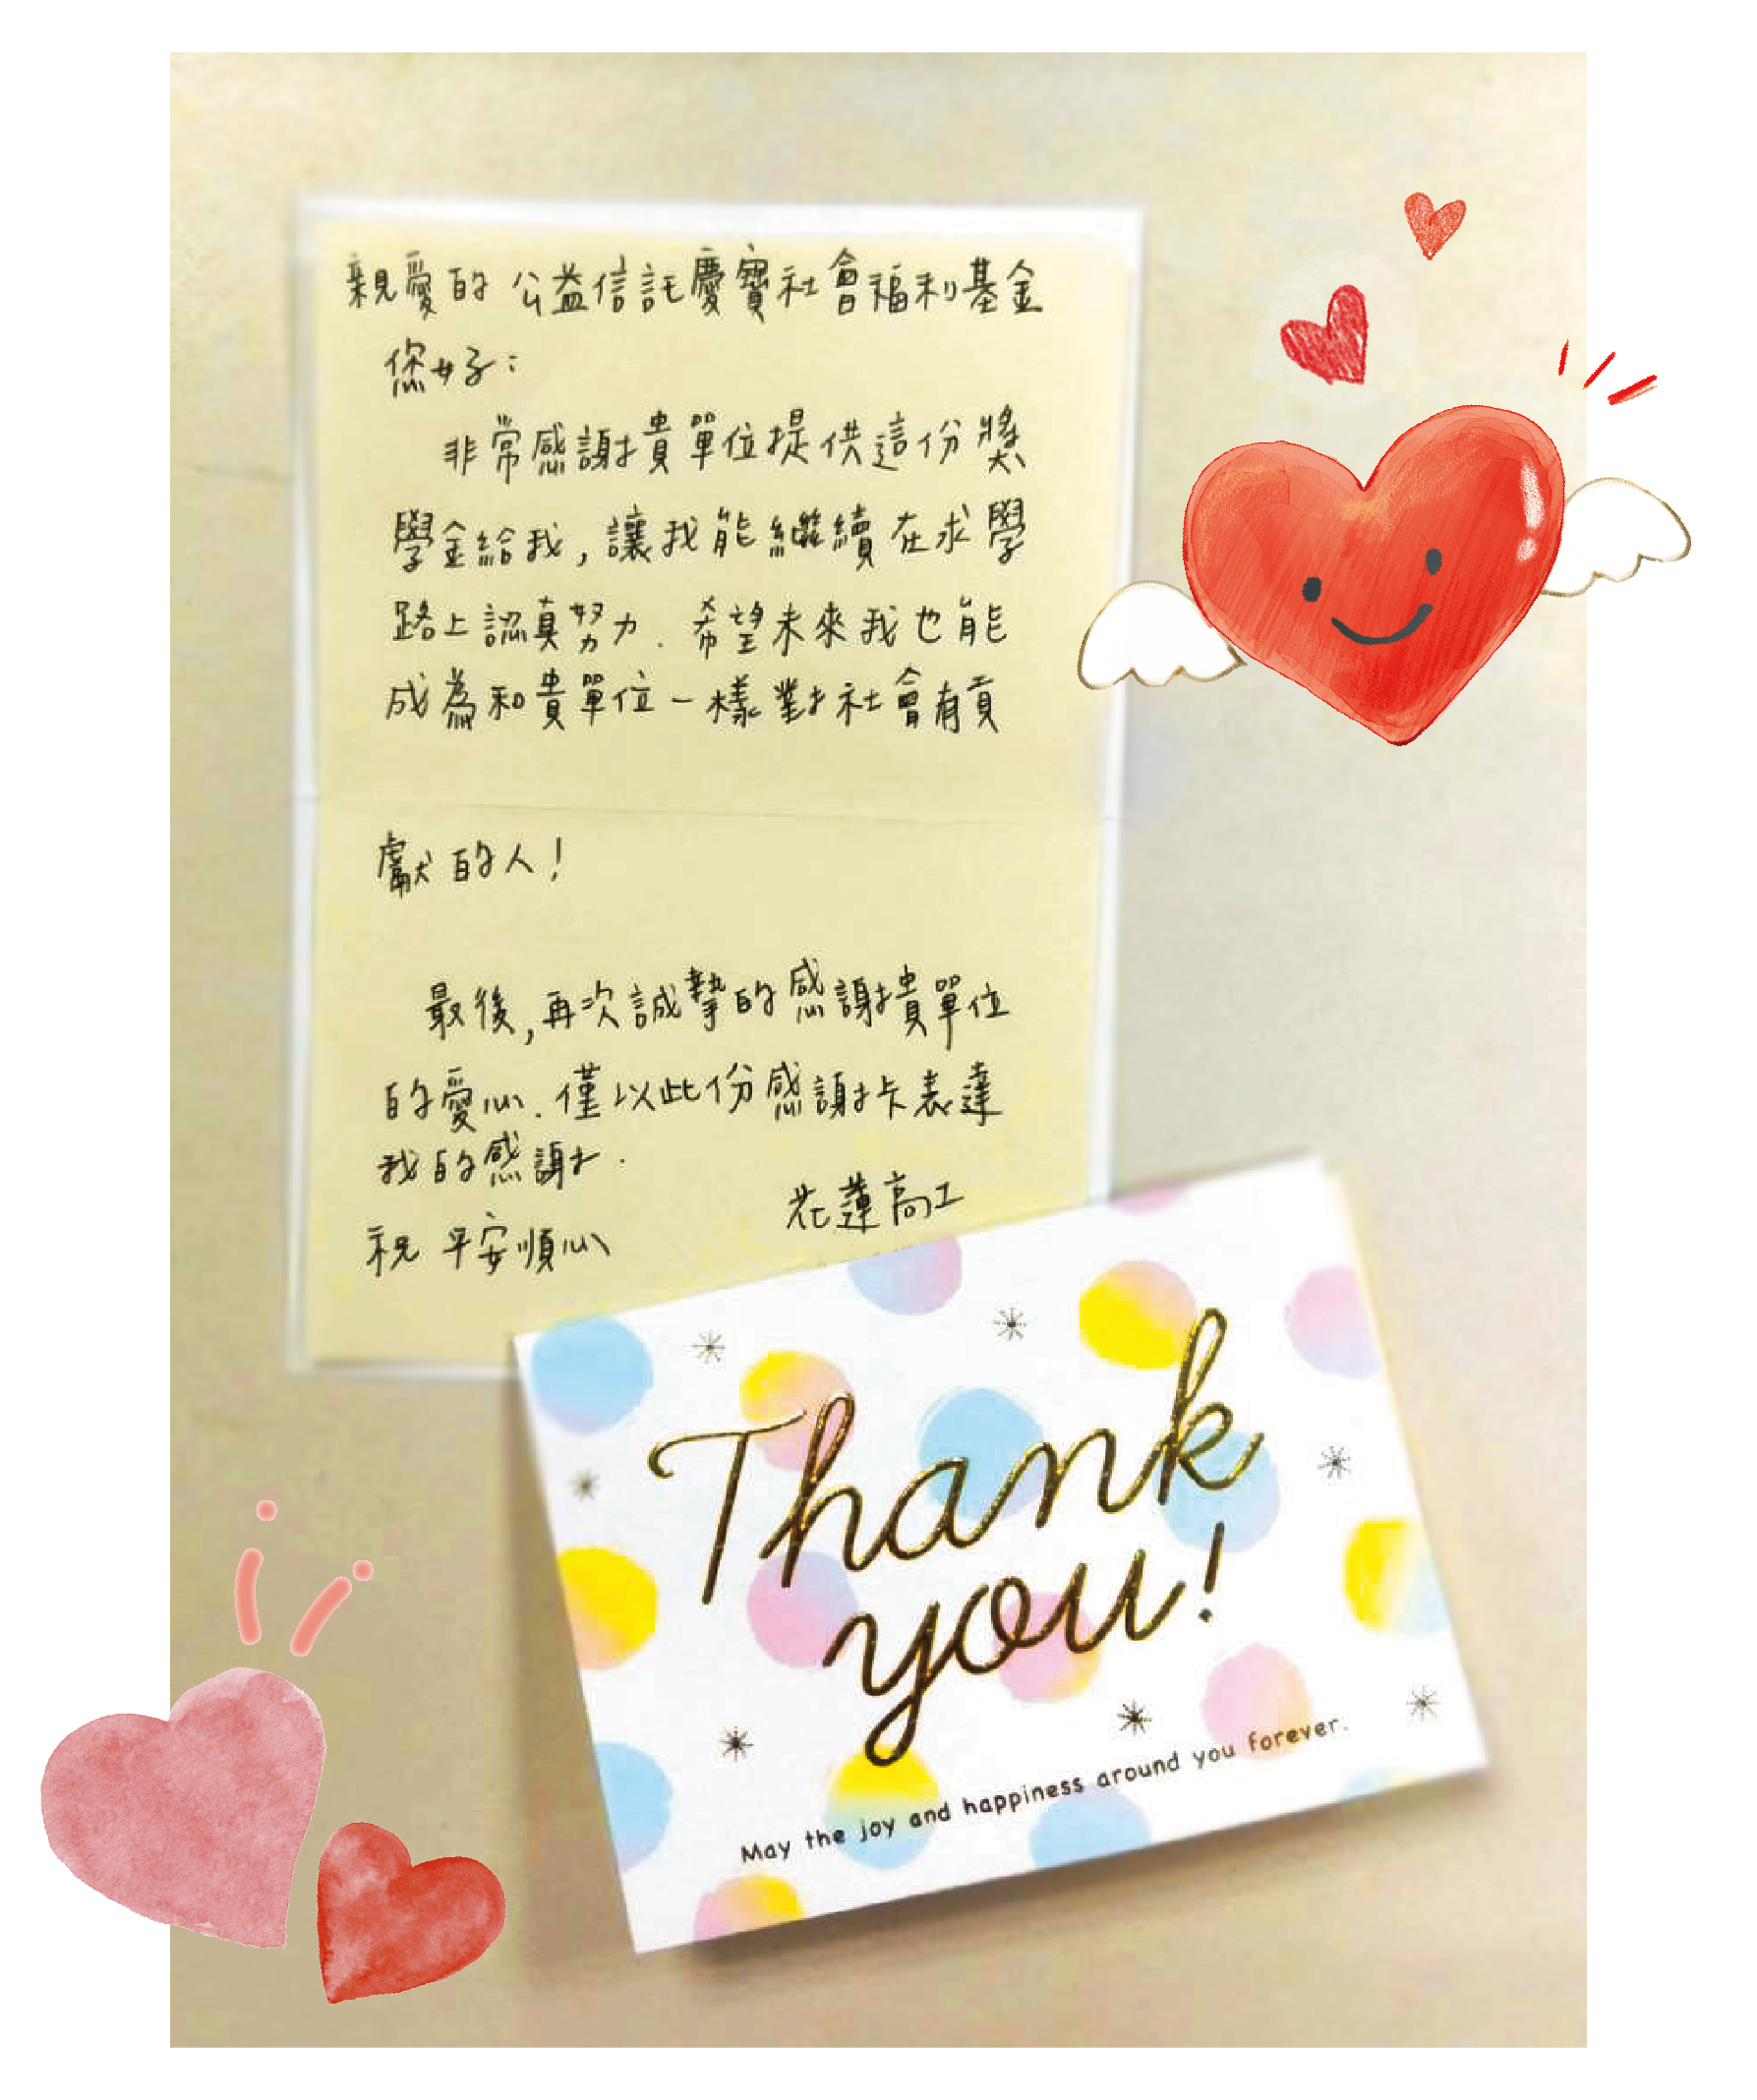 親愛的 公益信託慶寶社會福利基金
您好:
非常感謝貴單位提供這份獎
學金給我,讓我能繼續在求學
路上認真努力.希望未來我也能
成為和貴單位一樣對社會有貢
獻的人!
最後,再次誠摯的感謝貴單位
的愛心.僅以此份感謝卡表達
我的感謝.
花蓮高工
祝 平安順心
Thank
you!
May the joy and happiness around you forever.